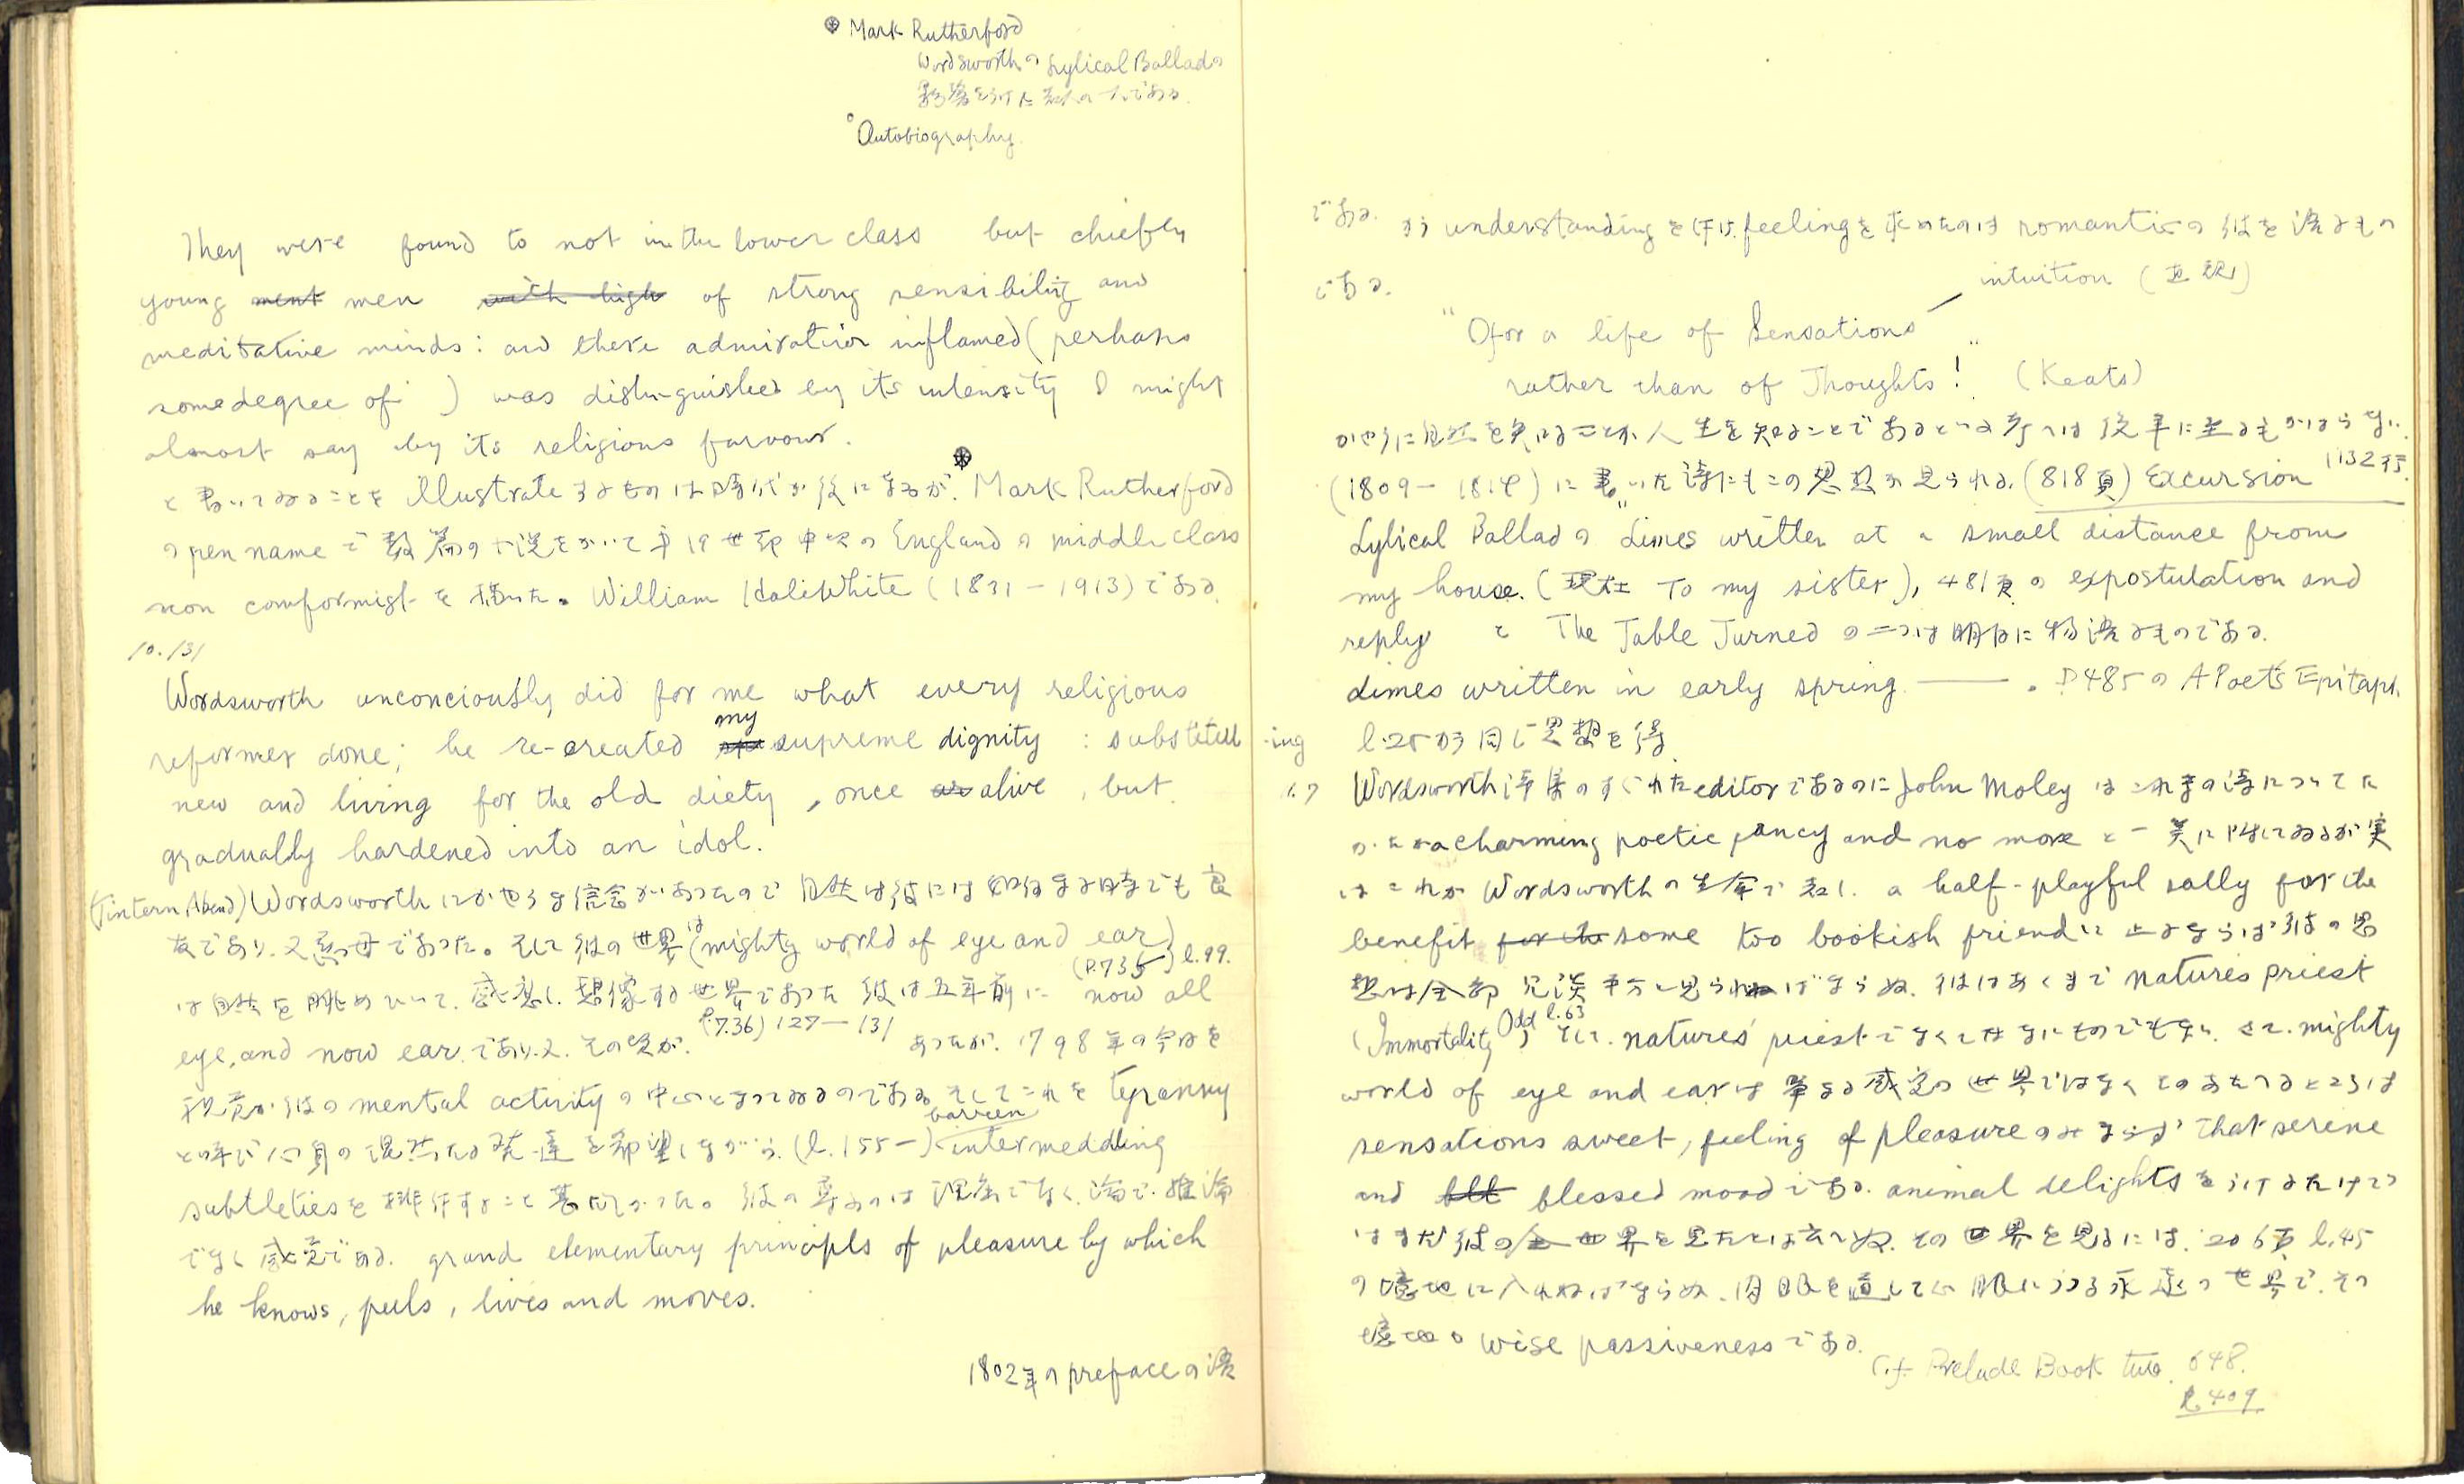 Mark Rutherford
WordsworthのLylical Balladの
影響をうけた 一人である.
Autobiography.
They were found to not in the lower class but chiefly
young ment men with high of strong sensibility and
meditative minds: and there admiration inflamed (perhaps
some degree of ) was distinguished by its intensity I might
almost say by its religious farvour.
と書いてゐることを illustrate するものは時代が後になるが. Mark Rutherford
のpen nameで数篇の小説をかいて 19世紀中 のEnglandのmiddle class
non comformistを描いた。William HaleWhite (1831-1913)である.
10.131
Wordsworth unconciously did for me what every religious
reformer done; he re-created my supreme dignity : substetutt -ing
new and living for the old diety, once as alive, but
gradually hardened into an idol.
(Tintern Abend) Wordsworthにかやうな信念があつたので自然は彼には如何なる時でも良
友であり.又慈母であつた。そして彼の世界は(mighty world of eye and ear)
(P.735) l.99.
は自然を眺めて 感じ. 想像する世界であつた 彼は五年前に now all
eye, and now ear. であり.又. その
P.736) 127-131
あつたが. 1798年の今日も
視覚が彼のmental activityの中心となつてゐるのである そしてこれを tyranny
と呼び心身の渾然たる発達を希望しながら. (l.155-) barren intermeddling
subtletiesを排斥すること 彼の は理屈でなく. 推論
でなく感覚である. grand elementary principls of pleasure by which
he knows, feels, lives and moves.
1802年のprefaceの語
である. かう understandingを feelingを求めたのは romanticの彼を語るもの
である.
intuition (直観)
"O for a life of Sensations
rather than of Thoughts!" (Keats)
かやうに自然を知ることが人生を知ることであるといふ考へは後年に至るもかはらない.
(1809-1814)に書いた詩にもこの思想が見られる.(818頁) Excursion 1132行
Lylical Balladの "Limes written at a small distance from
my house. (現在 To my sister), 481頁の expostulation and
reply と The Table Turned の二つは明白に物語るものである.
Limes written in early spring ——. P485の A Poet's Epitaph.
l.25から同じ思想を得
Wordsworth詩集のすぐれたeditorであるのにJohn Moleyはこれ等の詩について
a charming poetic fancy and no more と一笑に附してゐるが実
はこれが Wordsworthの生命で a half-playful sally for the
benefit for the some too bookish friendに止まるならば彼の思
想は全部冗談半分と見られねばならぬ. 彼はあくまで nature's priest
(Immortality Odd l.63) そして. nature's priestでなくてはなにものでもない. さて. mighty
world of eye and ear は単なる感覚の世界ではなくそのあたへるところは
sensations sweet, feeling of pleasureのみならず that serene
and blt blessed moodである. animal delightsをうけるだけで
はまだ彼の全世界を見たとは云へぬ. その世界を見るには. 206頁 l.45
の境地に入れねばならぬ. 肉眼を通して心眼にうつる永遠の世界で. その
境地は wise passivenessである.
C.f. Prelude Book two. 648.
l.409.